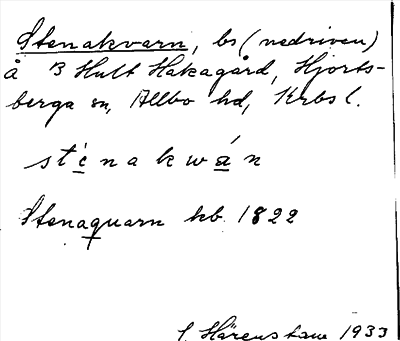 Stenakvarn, bs (nedriven)
å B Hult Hakagård, Hjorts-
berga sn, Allbo hd, Krbs l.
sténakwán
Stenaquarn kb 1822
S. Härenstam 1933